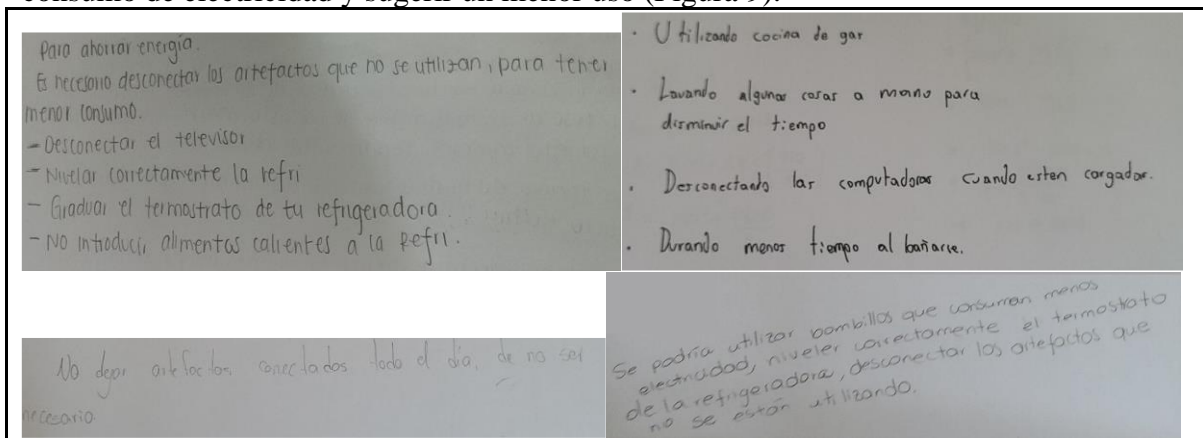 consumo de electricidad y sugerir un menor uso (Figura 9).
Para ahorrar energía.
Es necesario desconectar los artefactos que no se utilizan, para tener
menor consumo.
- Desconectar el televisor
- Nivelar correctamente la refri
- Graduar el termostrato de tu refrigeradora.
- No introducir alimentos calientes a la Refri.
· Utilizando cocina de gas
· Lavando algunas cosas a mano para
disminuir el tiempo
· Desconectando las computadoras cuando esten cargadas.
· Durando menos tiempo al bañarse.
No dejar artefactos conectados todo el día, de no ser
necesario.
Se podría utilizar bombillos que consuman menos
electricidad, niveler correctamente el termostrato
de la refrigeradora, desconectar los artefactos que
no se están utilizando.